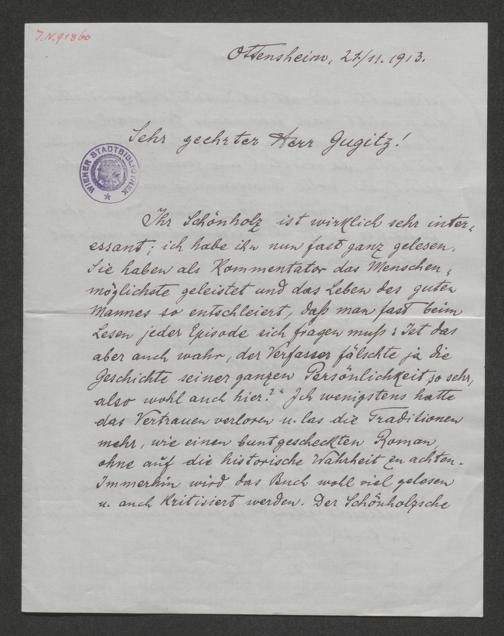 J.N. 91860
Ottensheim, 27/11. 1913.
Sehr geehrter Herr Gugitz!
WIENER STADTBIBLIOTHEK
Ihr Schönholz ist wirklich sehr inter-
essant; ich habe ihn nun fast ganz gelesen.
Sie haben als Kommentator das Menschen-
möglichste geleistet und das Leben des guten
Mannes so entschleiert, daß man fast beim
Lesen jeder Episode sich fragen muß: Ist das
aber auch wahr, der Verfasser fälschte ja die
Geschichte seiner ganzen Persönlichkeit so sehr,
also wohl auch hier?" Ich wenigstens hatte
das Vertrauen verloren u. las die Traditionen
mehr, wie einen buntgescheckten Roman,
ohne auf die historische Wahrheit zu achten.
Immerhin wird das Buch wohl viel gelesen
u. auch kritisiert werden. Der Schönholzsche